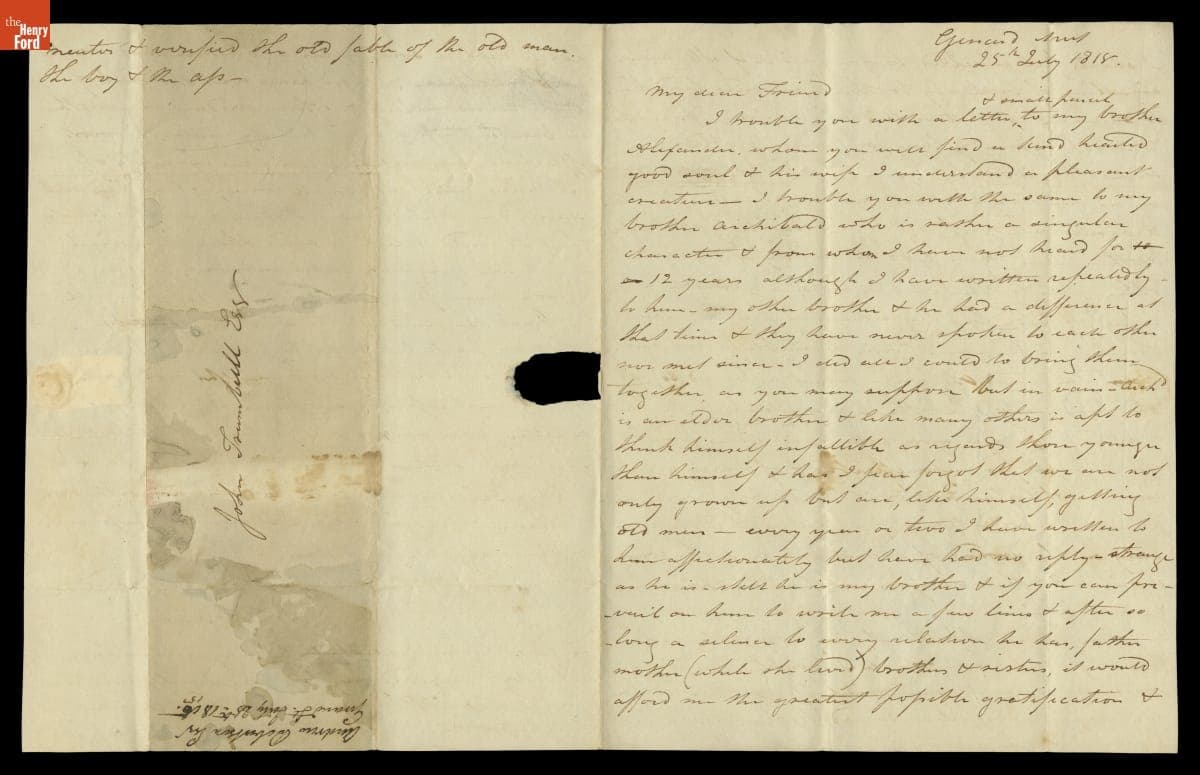 the
Henry
Ford
& verified the old fable of the old man.
the boy & the ass—
John Trumbull Esqr
Andrew
July 25th 1818.
25th July 1818.
My dear Friend
& small parcel
I trouble you with a letter to my brother
Alexander, whom you will find a kind hearted
good soul & his wife I understand a pleasant
creature — I trouble you with the same to my
brother Archibald who is rather a singular
character & from whom I have not heard for
12 years although I have written repeatedly
to him — my other brother & he had a difference at
that time & they have never spoken to each other
nor met since - I did all I could to bring them
together, as you may suppose but in vain - Archd
is an elder brother & like many others is apt to
think himself infallible as regards those younger
than himself & has I fear forgot that we are not
only grown up but are, like himself, getting
old men — every year or two I have written to
him affectionately but have had no reply - strange
as he is - still he is my brother & if you can pre-
-vail on him to write me a few lines & after so
-long a silence to every relation he has, father
mother (while she lived) brothers & sisters, it would
afford me the greatest possible gratification &